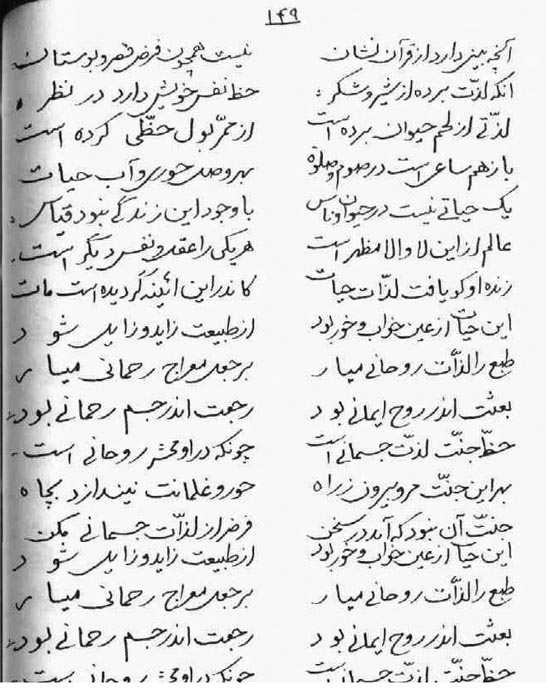 ۱۴۹
آنچه بینی دارد از قرآن نشان نیست همچون فرض قصر و بوستان
آنکه لذّت برده از شیر و شکر حظ نفس خویش دارد در نظر
لذّتے از لحم حیوان برده است از خمر بول حظّی کرده است
باز هم ساعی است در صوم و صلوة بهر وصل حوری و آب حیات
یک حیاتے نیست در حیوان و ناس با وجود این زندگے نبود قیاس
عالم از این لا و الا مظهر است هر یکی را عقل و نفس دیگر است
زنده او کو یافت لذّات حیات کاندر این آئینه گردیده است مات
این حیات از عین خواب و خور بود از طبیعت زاید و زایل شود
طبع را لذّات روحانے میار بر جعل معراج رحمانی میار
بعثت اندر روح ایمانے بود رجعت اندر جسم رحمانے بود
حظّ جنّت لذّت جسمانے است چونکه در او محشر روحانے است
بهر این جنّت مرو بیرون ز راه حور و غلمانت نیندازد بچاه
جنّت آن نبود که آید در سخن فرض از لذّات جسمانے مکن
این حیات از عین خواب و خور بود از طبیعت زاید و زایل شود
طبع را لذّات روحانے میار بر جعل معراج رحمانی میار
بعثت اندر روح ایمانے بود رجعت اندر جسم رحمانے بود
حظّ جنّت لذّت جسمانے است چونکه در او محشر روحانے است